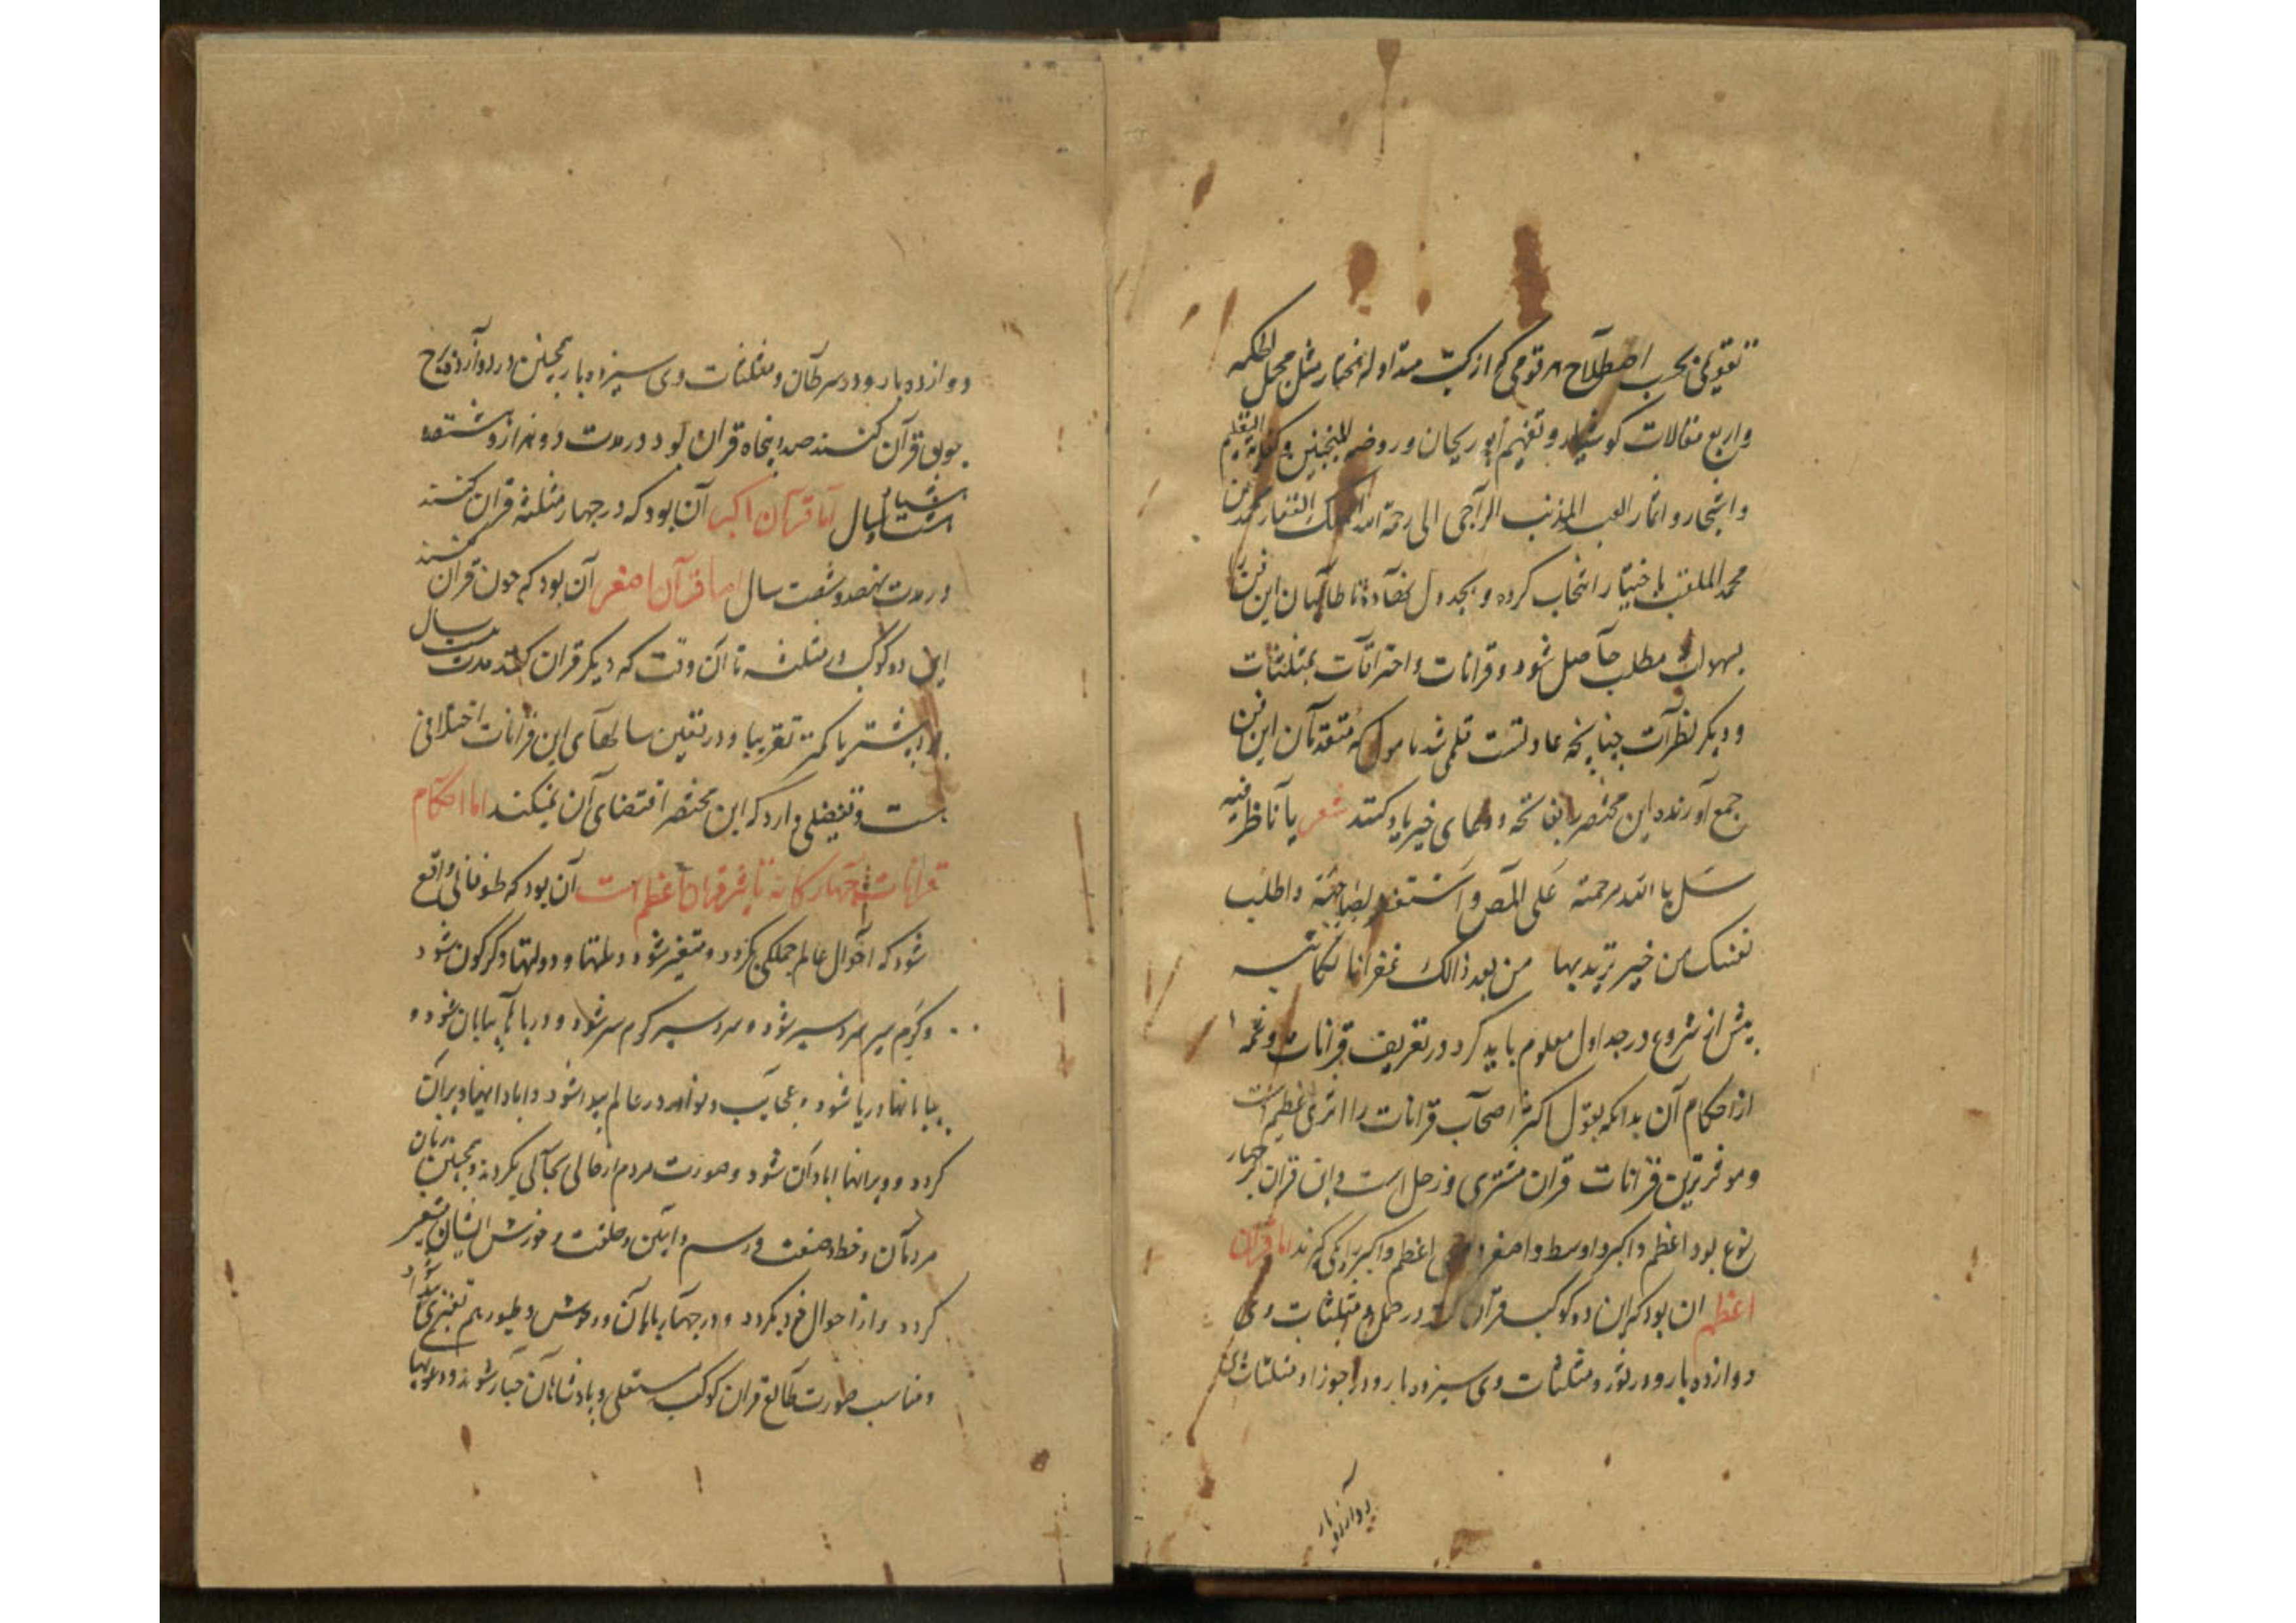 تقویمی بحسب اصطلاح هر قومی که از کتب متداوله اخیار مثل مجمل
واربع مقالات کوشیار و تفهیم ابوریحان و روضه المنجمین و کفایه التعلیم
واشجار و اثمار العبد المذنب الراجی الی رحمة الله الملک الغفار محمد بن
محمد الملقب باختیار انتخاب کرده و بجدول نهاده تا طالبان این فن
بسهولت مطلب حاصل شود و قرانات و احتراقات بمثلثات
و دیکر نظرات چنانچه عادتست قلمی شد مامول که متقدمان این فن
جمع آورنده این مختصر بفاتحه و دعای خیر یاد کنند شعر یا ناظر فیه
سل بالله مرحمة علی المص و استغفر لصاحبه واطلب
لنفسک من خیر تریدبها من بعد ذالک غفرانا لکاتبه
پیش از شروع در جداول معلوم باید کرد در تعریف قرانات و نبذ
از احکام آن بدانکه بقول اکثر اصحاب قرانات را اثری عظیم است
و موفرترین قرانات قران مشتری و زحل است و این قران بر چهار
نوع بود اعظم و اکبر و اوسط و اصغر و اعظم و اکبر را یکی کیرند اما قران
اعظم ان بود که این دو کوکب قران کنند در حمل و مثلثات وی
دوازده بار و در ثور و مثلثات وی سیزده بار و در جوزا و مثلثات وی
دوازده بار
دوازده بار و در سرطان و مثلثات وی سیزده بار همچنین در دوازده برج
چون قران کنند صد و پنجاه قران بود در مدت دو هزار و هشتصد
هشتاد سال اما قران اکبر آن بود که در چهار مثلثه قران کنند
در مدت نهصد و شصت سال اما قران اصغر آن بود که چون قران کنند
این دو کوکب در مثلثه تا آن وقت که دیکر قران کنند مدت بیست سال
بود بیشتر یا کمتر تقریبا و در تعین سالهای این قرانات اختلافی
هست و تفصیلی دارد که این مختصر اقتضای آن نمیکند اما احکام
قرانات چهارکانه تاثیر قران اعظم است آن بود که طوفانی واقع
شود که احوال عالم جملکی بکردد و متغیر شود و ملتها و دولتها دکرکون شود
و کرم سیر سرد سیر شود و سرد سیر کرم سیر شود و دریاها بیابان شود و
بیابانها دریا شود و عجایب و نوادر در عالم پیدا شود و ابادانیها ویران
کردد و ویرانها ابادان شود و صورت مردم از حالی بحالی بکردد و همچنین زبان
مردمان و خط و صنعت و رسم و ایین و خلقت و خورش ایشان متغیر
کردد و از احوال خود بکردد و در چهارپایان و وحوش و طیور هم تغیری پیدا شود
و مناسب صورت طالع قران کوکب مستعلی و پادشاهان جبار شوند و